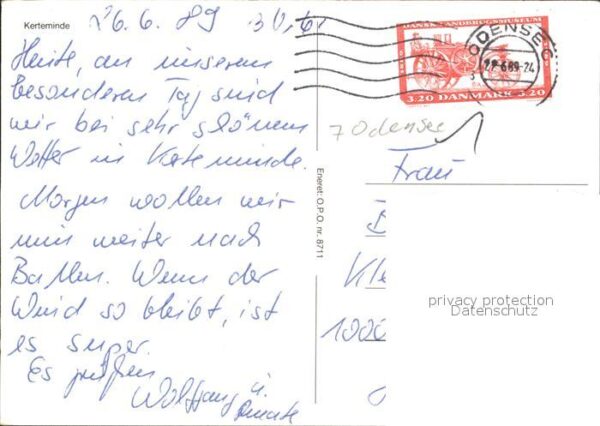 Kerteminde
26.6.89
Heute, an unserem
besonderen Tag sind
wir bei sehr schönem
Wetter in Kerteminde.
Morgen wollen wir
nun weiter nach
Ballen. Wenn der
Wind so bleibt, ist
es super.
Es grüßen
Wolfgang u.
Renate
Eneret: O.P.O. nr. 8711
DANSK LANDBRUGSMUSEUM
3.20 DANMARK 3.20
ODENSE C
27-6-89-24
7 Odensee
Frau
Kle
1000
privacy protection
Datenschutz